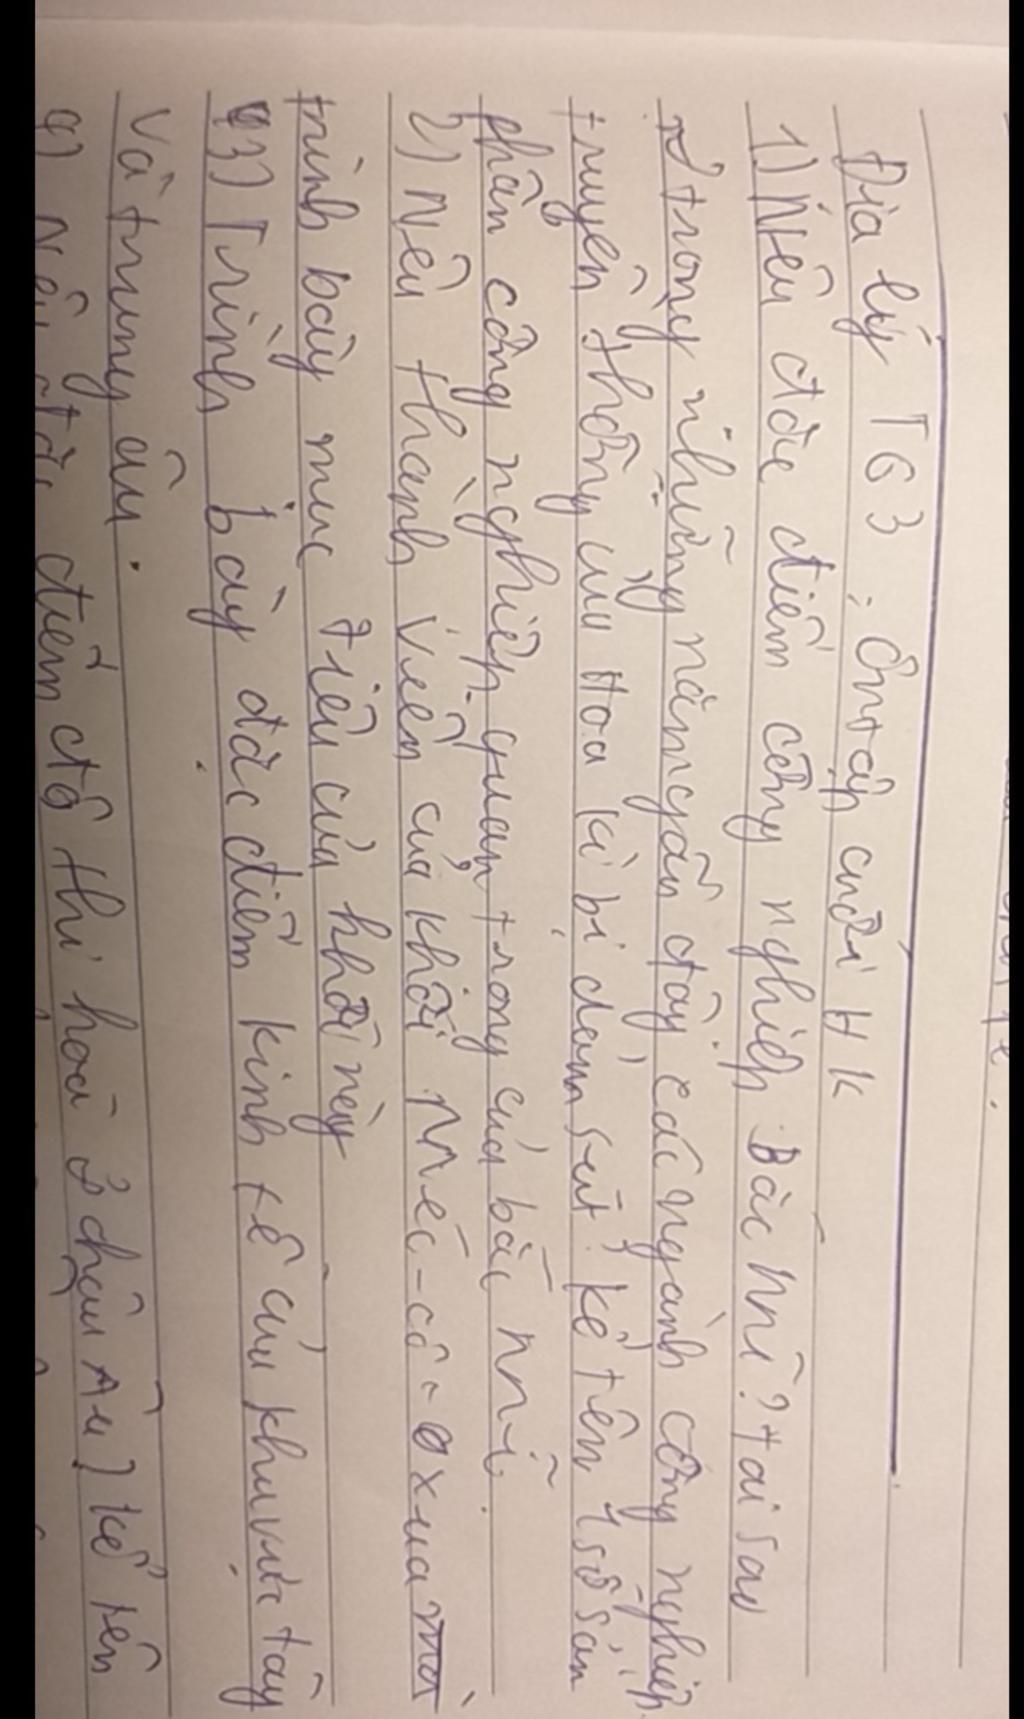 Địa lý T63: Ôn tập cuối HK
1) Nêu đặc điểm công nghiệp Bắc Mĩ? tại sao
trong những năm gần đây các ngành công nghiệp
truyền thống của Hoa kì bị dảm sút? kể tên 1 số sản
phẩm công nghiệp quan trọng của bắc mĩ.
2) Nêu thành viên của khối Mec-cô-oxua
trình bày mục tiêu của khối này
3) Trình bày đặc điểm kinh tế của khu vực tây
và trung âu.
4) Nêu đặc điểm đô thị hoá ở châu Âu] kể tên